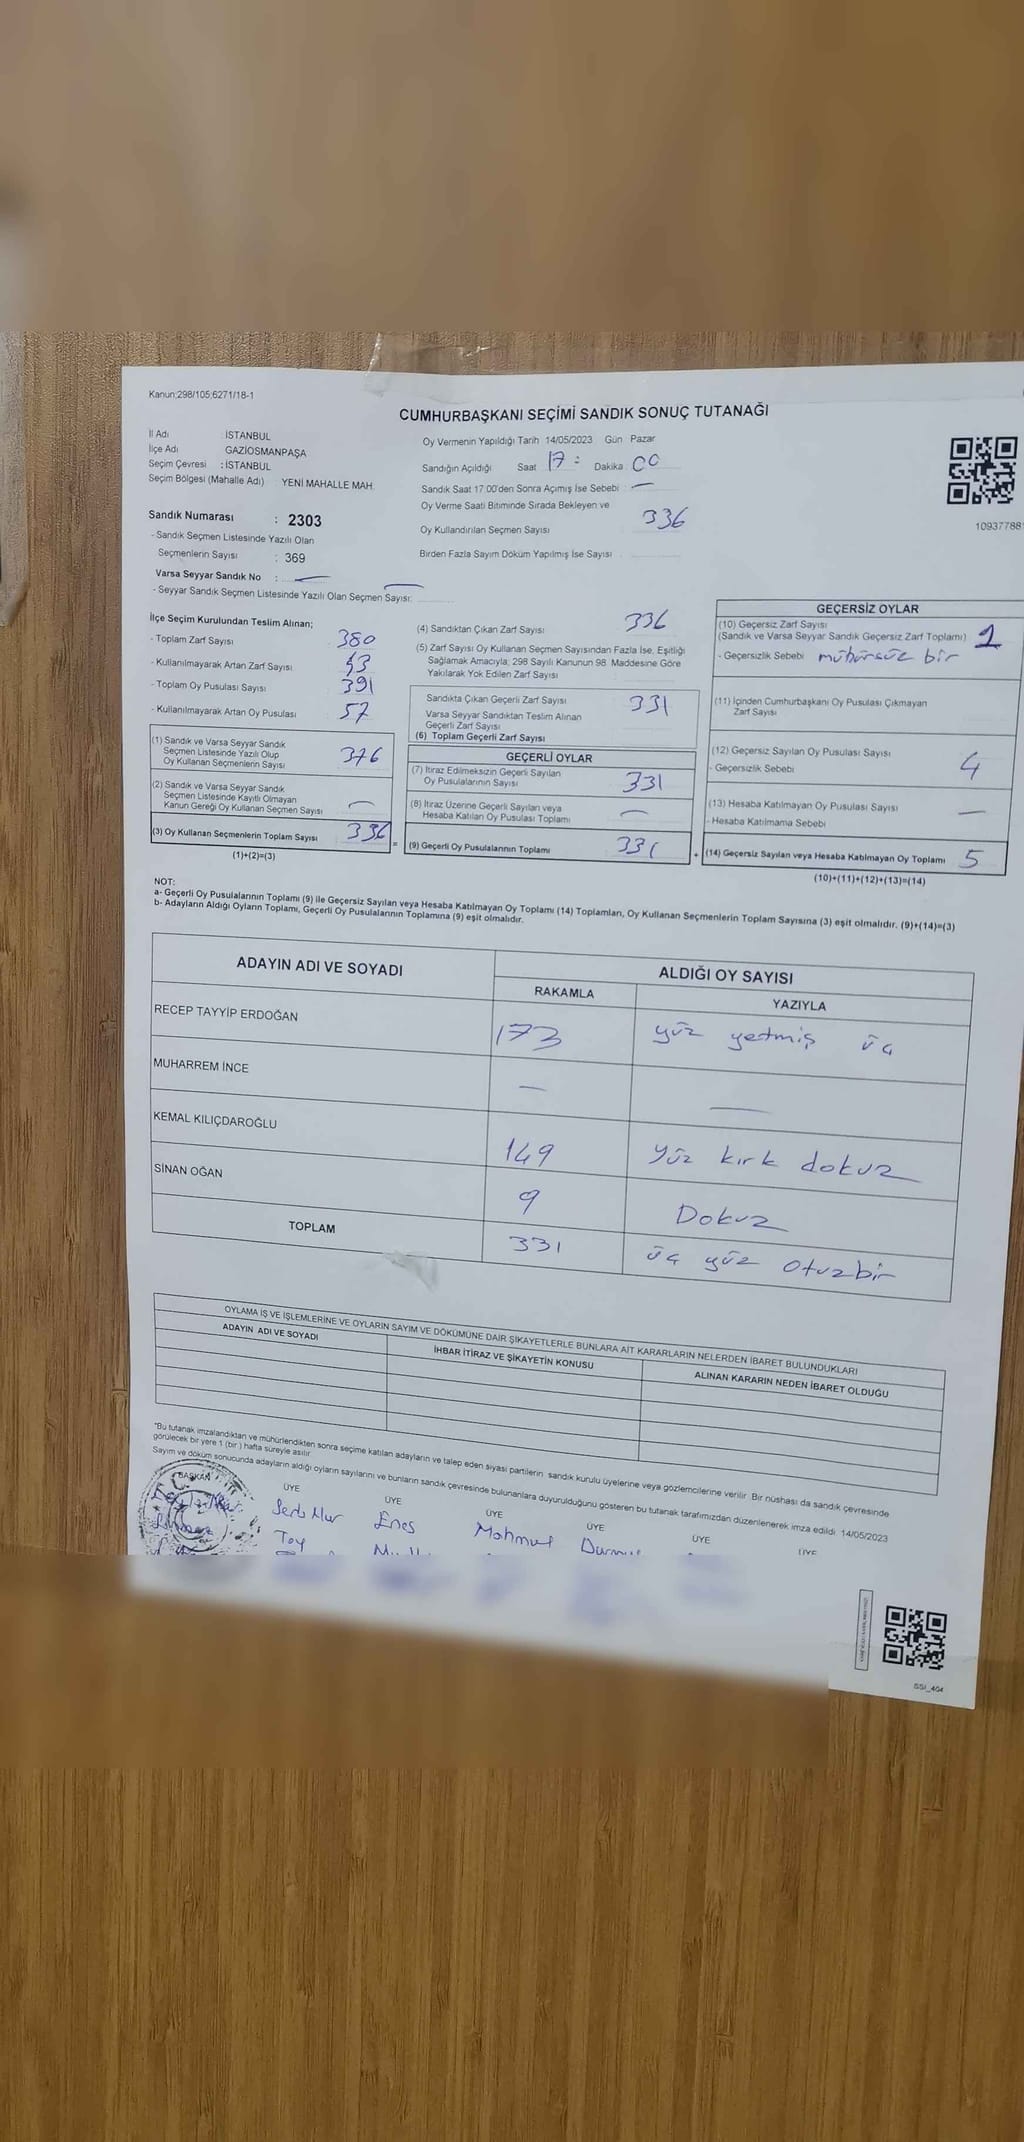 Kanun;298/105;6271/18-1
CUMHURBAŞKANI SEÇİMİ SANDIK SONUÇ TUTANAĞI
İl Adı : İSTANBUL
İlçe Adı GAZİOSMANPAŞA
Seçim Çevresi : İSTANBUL
Seçim Bölgesi (Mahalle Adı) YENİ MAHALLE MAH.
Sandık Numarası : 2303
- Sandık Seçmen Listesinde Yazılı Olan
Seçmenlerin Sayısı : 369
Varsa Seyyar Sandık No : —
- Seyyar Sandık Seçmen Listesinde Yazılı Olan Seçmen Sayısı: —
Oy Vermenin Yapıldığı Tarih 14/05/2023 Gün Pazar
Sandığın Açıldığı Saat 17 : Dakika 00
Sandık Saat 17:00'den Sonra Açımış İse Sebebi : —
Oy Verme Saati Bitiminde Sırada Bekleyen ve
Oy Kullandırılan Seçmen Sayısı 336
Birden Fazla Sayım Döküm Yapılmış İse Sayısı
109377881
İlçe Seçim Kurulundan Teslim Alınan;
- Toplam Zarf Sayısı 380
- Kullanılmayarak Artan Zarf Sayısı 43
- Toplam Oy Pusulası Sayısı 391
- Kullanılmayarak Artan Oy Pusulası 57
(1) Sandık ve Varsa Seyyar Sandık
Seçmen Listesinde Yazılı Olup
Oy Kullanan Seçmenlerin Sayısı 376
(2) Sandık ve Varsa Seyyar Sandık
Seçmen Listesinde Kayıtlı Olmayan
Kanun Gereği Oy Kullanan Seçmen Sayısı —
(3) Oy Kullanan Seçmenlerin Toplam Sayısı 336
(1)+(2)=(3)
(4) Sandıktan Çıkan Zarf Sayısı 336
(5) Zarf Sayısı Oy Kullanan Seçmen Sayısından Fazla İse, Eşitliği
Sağlamak Amacıyla, 298 Sayılı Kanunun 98. Maddesine Göre
Yakılarak Yok Edilen Zarf Sayısı
Sandıkta Çıkan Geçerli Zarf Sayısı 331
Varsa Seyyar Sandıktan Teslim Alınan
Geçerli Zarf Sayısı
(6) Toplam Geçerli Zarf Sayısı
GEÇERLİ OYLAR
(7) İtiraz Edilmeksizin Geçerli Sayılan
Oy Pusulalarının Sayısı 331
(8) İtiraz Üzerine Geçerli Sayılan veya
Hesaba Katılan Oy Pusulası Toplamı —
= (9) Geçerli Oy Pusulalarının Toplamı 331
GEÇERSİZ OYLAR
(10) Geçersiz Zarf Sayısı
(Sandık ve Varsa Seyyar Sandık Geçersiz Zarf Toplamı) 1
- Geçersizlik Sebebi mühürsüz bir
(11) İçinden Cumhurbaşkanı Oy Pusulası Çıkmayan
Zarf Sayısı
(12) Geçersiz Sayılan Oy Pusulası Sayısı 4
- Geçersizlik Sebebi
(13) Hesaba Katılmayan Oy Pusulası Sayısı —
- Hesaba Katılmama Sebebi
+ (14) Geçersiz Sayılan veya Hesaba Katılmayan Oy Toplamı 5
(10)+(11)+(12)+(13)=(14)
NOT:
a- Geçerli Oy Pusulalarının Toplamı (9) ile Geçersiz Sayılan veya Hesaba Katılmayan Oy Toplamı (14) Toplamları, Oy Kullanan Seçmenlerin Toplam Sayısına (3) eşit olmalıdır. (9)+(14)=(3)
b- Adayların Aldığı Oyların Toplamı, Geçerli Oy Pusulalarının Toplamına (9) eşit olmalıdır.
ADAYIN ADI VE SOYADI ALDIĞI OY SAYISI
RAKAMLA YAZIYLA
RECEP TAYYİP ERDOĞAN 173 yüz yetmiş üç
MUHARREM İNCE — —
KEMAL KILIÇDAROĞLU 149 yüz kırk dokuz
SİNAN OĞAN 9 Dokuz
TOPLAM 331 üç yüz otuzbir
OYLAMA İŞ VE İŞLEMLERİNE VE OYLARIN SAYIM VE DÖKÜMÜNE DAİR ŞİKAYETLERLE BUNLARA AİT KARARLARIN NELERDEN İBARET BULUNDUKLARI
ADAYIN ADI VE SOYADI İHBAR İTİRAZ VE ŞİKAYETİN KONUSU ALINAN KARARIN NEDEN İBARET OLDUĞU
"Bu tutanak imzalandıktan ve mühürlendikten sonra seçime katılan adayların ve talep eden siyasi partilerin sandık kurulu üyelerine veya gözlemcilerine verilir. Bir nüshası da sandık çevresinde
görülecek bir yere 1 (bir) hafta süreyle asılır.
Sayım ve döküm sonucunda adayların aldığı oyların sayılarını ve bunların sandık çevresinde bulunanlara duyurulduğunu gösteren bu tutanak tarafımızdan düzenlenerek imza edildi. 14/05/2023
BAŞKAN ÜYE ÜYE ÜYE ÜYE ÜYE ÜYE
T.C.
Enes Mahmut
Toy
SSI_404